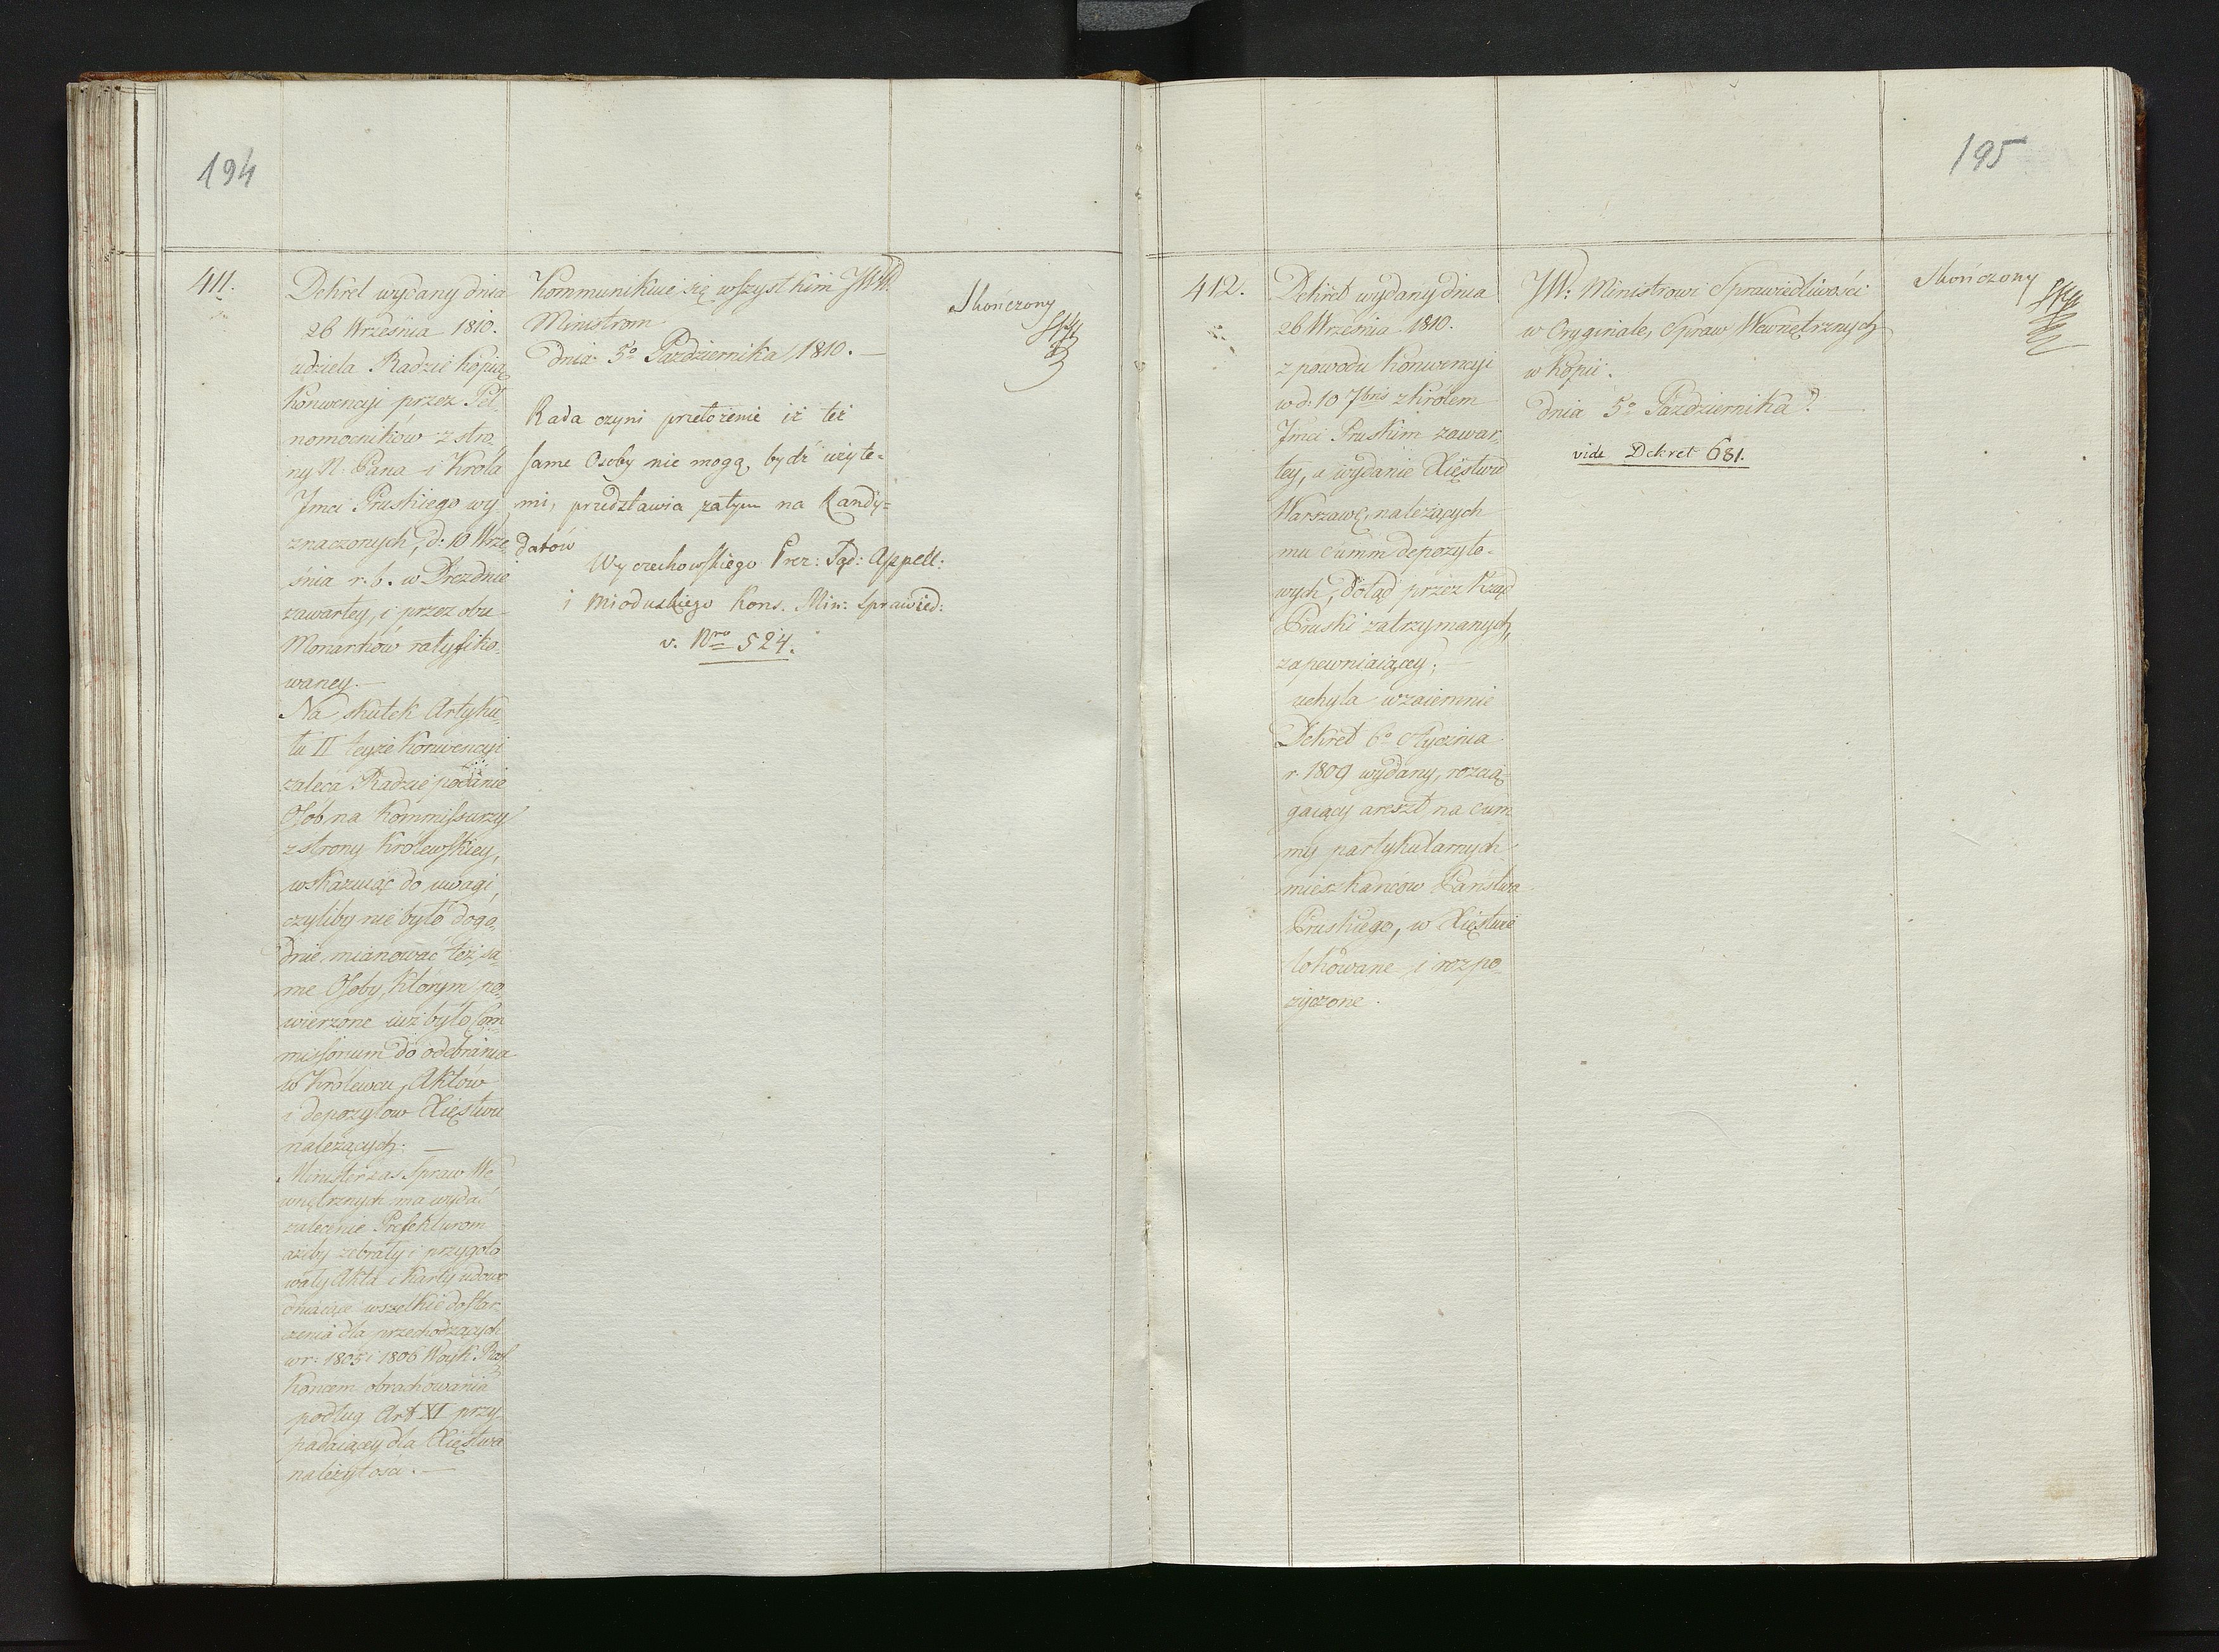 194
411.
Dekret wydany dnia
26 Września 1810.
udziela Radzie kopią
Konwencyi przez Peł-
nomocników z stro-
ny N. Pana i Króla
Jmci Pruskiego wy-
znaczonych, d: 10 Wrze-
śnia r. b. w Dreznie
zawartey, i przez obu
Monarchów ratyfiko-
waney.—
Na skutek Artyku-
łu II teyże Konwencyi
zaleca Radzie podanie
Osób na Kommissarzy
z strony Królewskiey,
wskazuiąc do uwagi,
czyliby nie było dogo-
dnie mianować też sa-
me Osoby, którym po-
wierzone iuż było Com-
missorium do odebrania
w Królewcu, Aktów
i depozytów Xięstwu
należących.—
Minister zaś Spraw We-
wnętrznych ma wydać
zalecenie Prefekturom
ażeby zebrały i przygoto
wały Akta i Karty udowo
dniaiące wszelkie dostar-
czenia dla przechodzących
w r: 1805 i 1806 Woysk
Koncem obrachowania
podług Art XI przy-
padaiącey dla Xięstwa
należytości.—
Kommunikuie się wszystkim JWW.
Ministrom
dnia 5o Pazdziernika 1810.—
Rada czyni przełożenie iż też
same Osoby nie mogą bydź użyte-
mi, przedstawia zatym na Kandy=
datów
Wyczechowskiego Prez: Sąd: Appell:
i Mioduskiego Kons. Min: Sprawied:
v. Nro 524.
Skończony
195
412.
Dekret wydany dnia
26 Września 1810.
z powodu Konwencyi
w d: 10 7bris z Królem
Jmci Pruskim zawar-
tey, a wydanie Xięstwu
Warszaws. należących
mu Summ depozyto-
wych, dotąd przez Rząd
Pruski zatrzymanych,
zapewniaiącey;—
uchyla wzaiemnie
Dekret 6o Stycznia
r. 1809 wydany, rozcią-
gaiący areszt na Sum
my partykularnych
mieszkańców Państwa
Pruskiego, w Xięstwie
lokowane i rozpo-
życzone.
JW: Ministrowi Sprawiedliwości
w Oryginale, Spraw Wewnętrznych
w Kopii.
dnia 5o Pazdziernika.—
vide Dekret 681.
Skończony